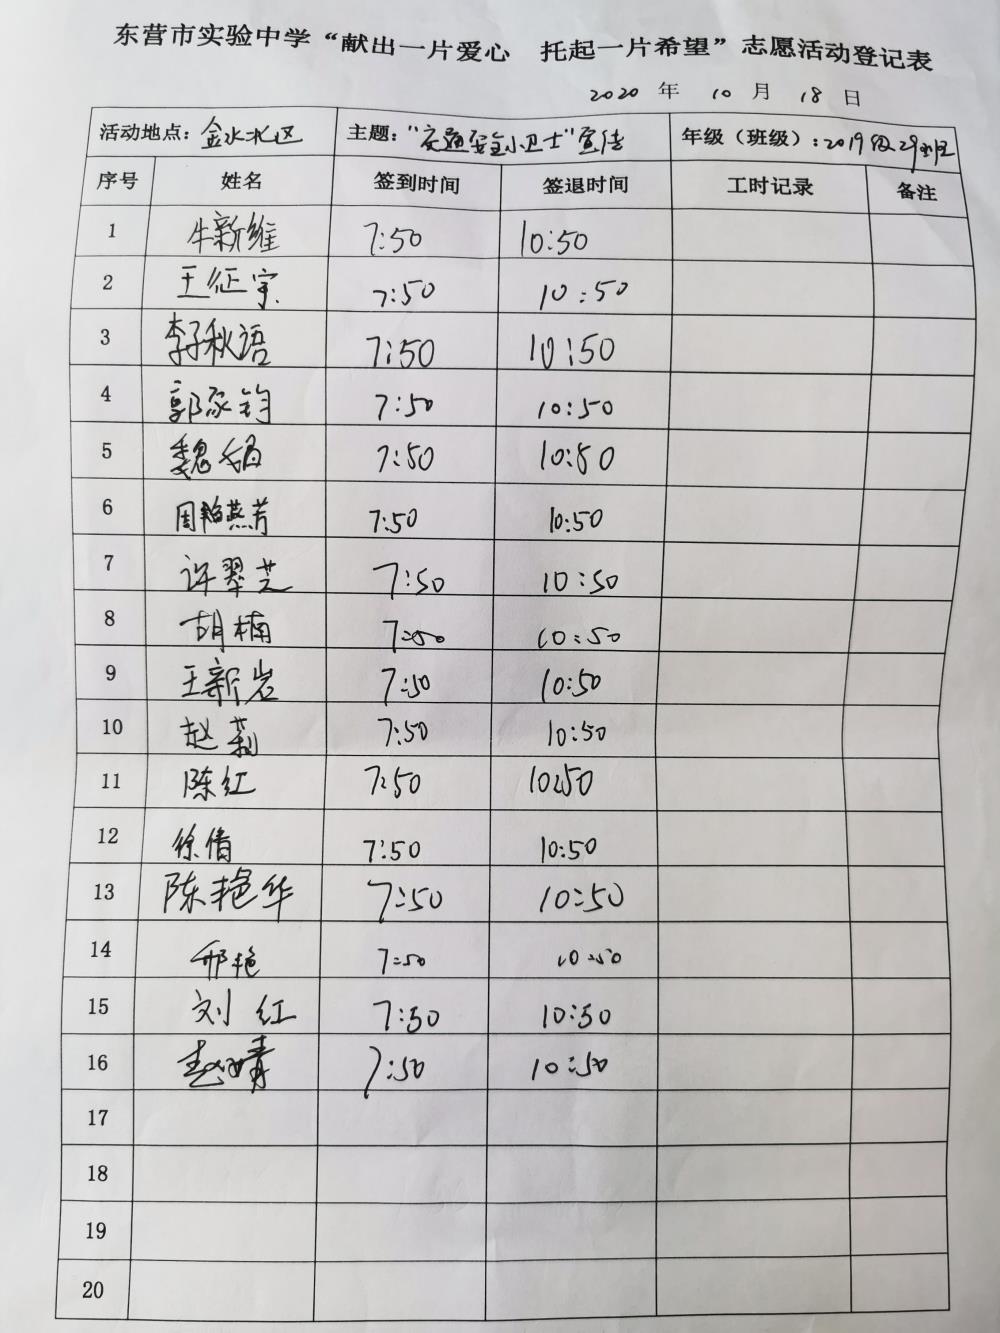 东营市实验中学“献出一片爱心 托起一片希望”志愿活动登记表
2020 年 10 月 18 日
活动地点：金水北区 主题：“交通安全小卫士”宣传 年级（班级）：2019级29班
序号 姓名 签到时间 签退时间 工时记录 备注
1 牛新维 7:50 10:50
2 王征宇 7:50 10:50
3 李秋语 7:50 10:50
4 郭家钧 7:50 10:50
5 魏娟 7:50 10:50
6 周艳燕芳 7:50 10:50
7 许翠芝 7:50 10:50
8 胡楠 7:50 10:50
9 王新岩 7:50 10:50
10 赵莉 7:50 10:50
11 陈红 7:50 10:50
12 徐倩 7:50 10:50
13 陈艳华 7:50 10:50
14 邢艳 7:50 10:50
15 刘红 7:50 10:50
16 7:50 10:50
17
18
19
20